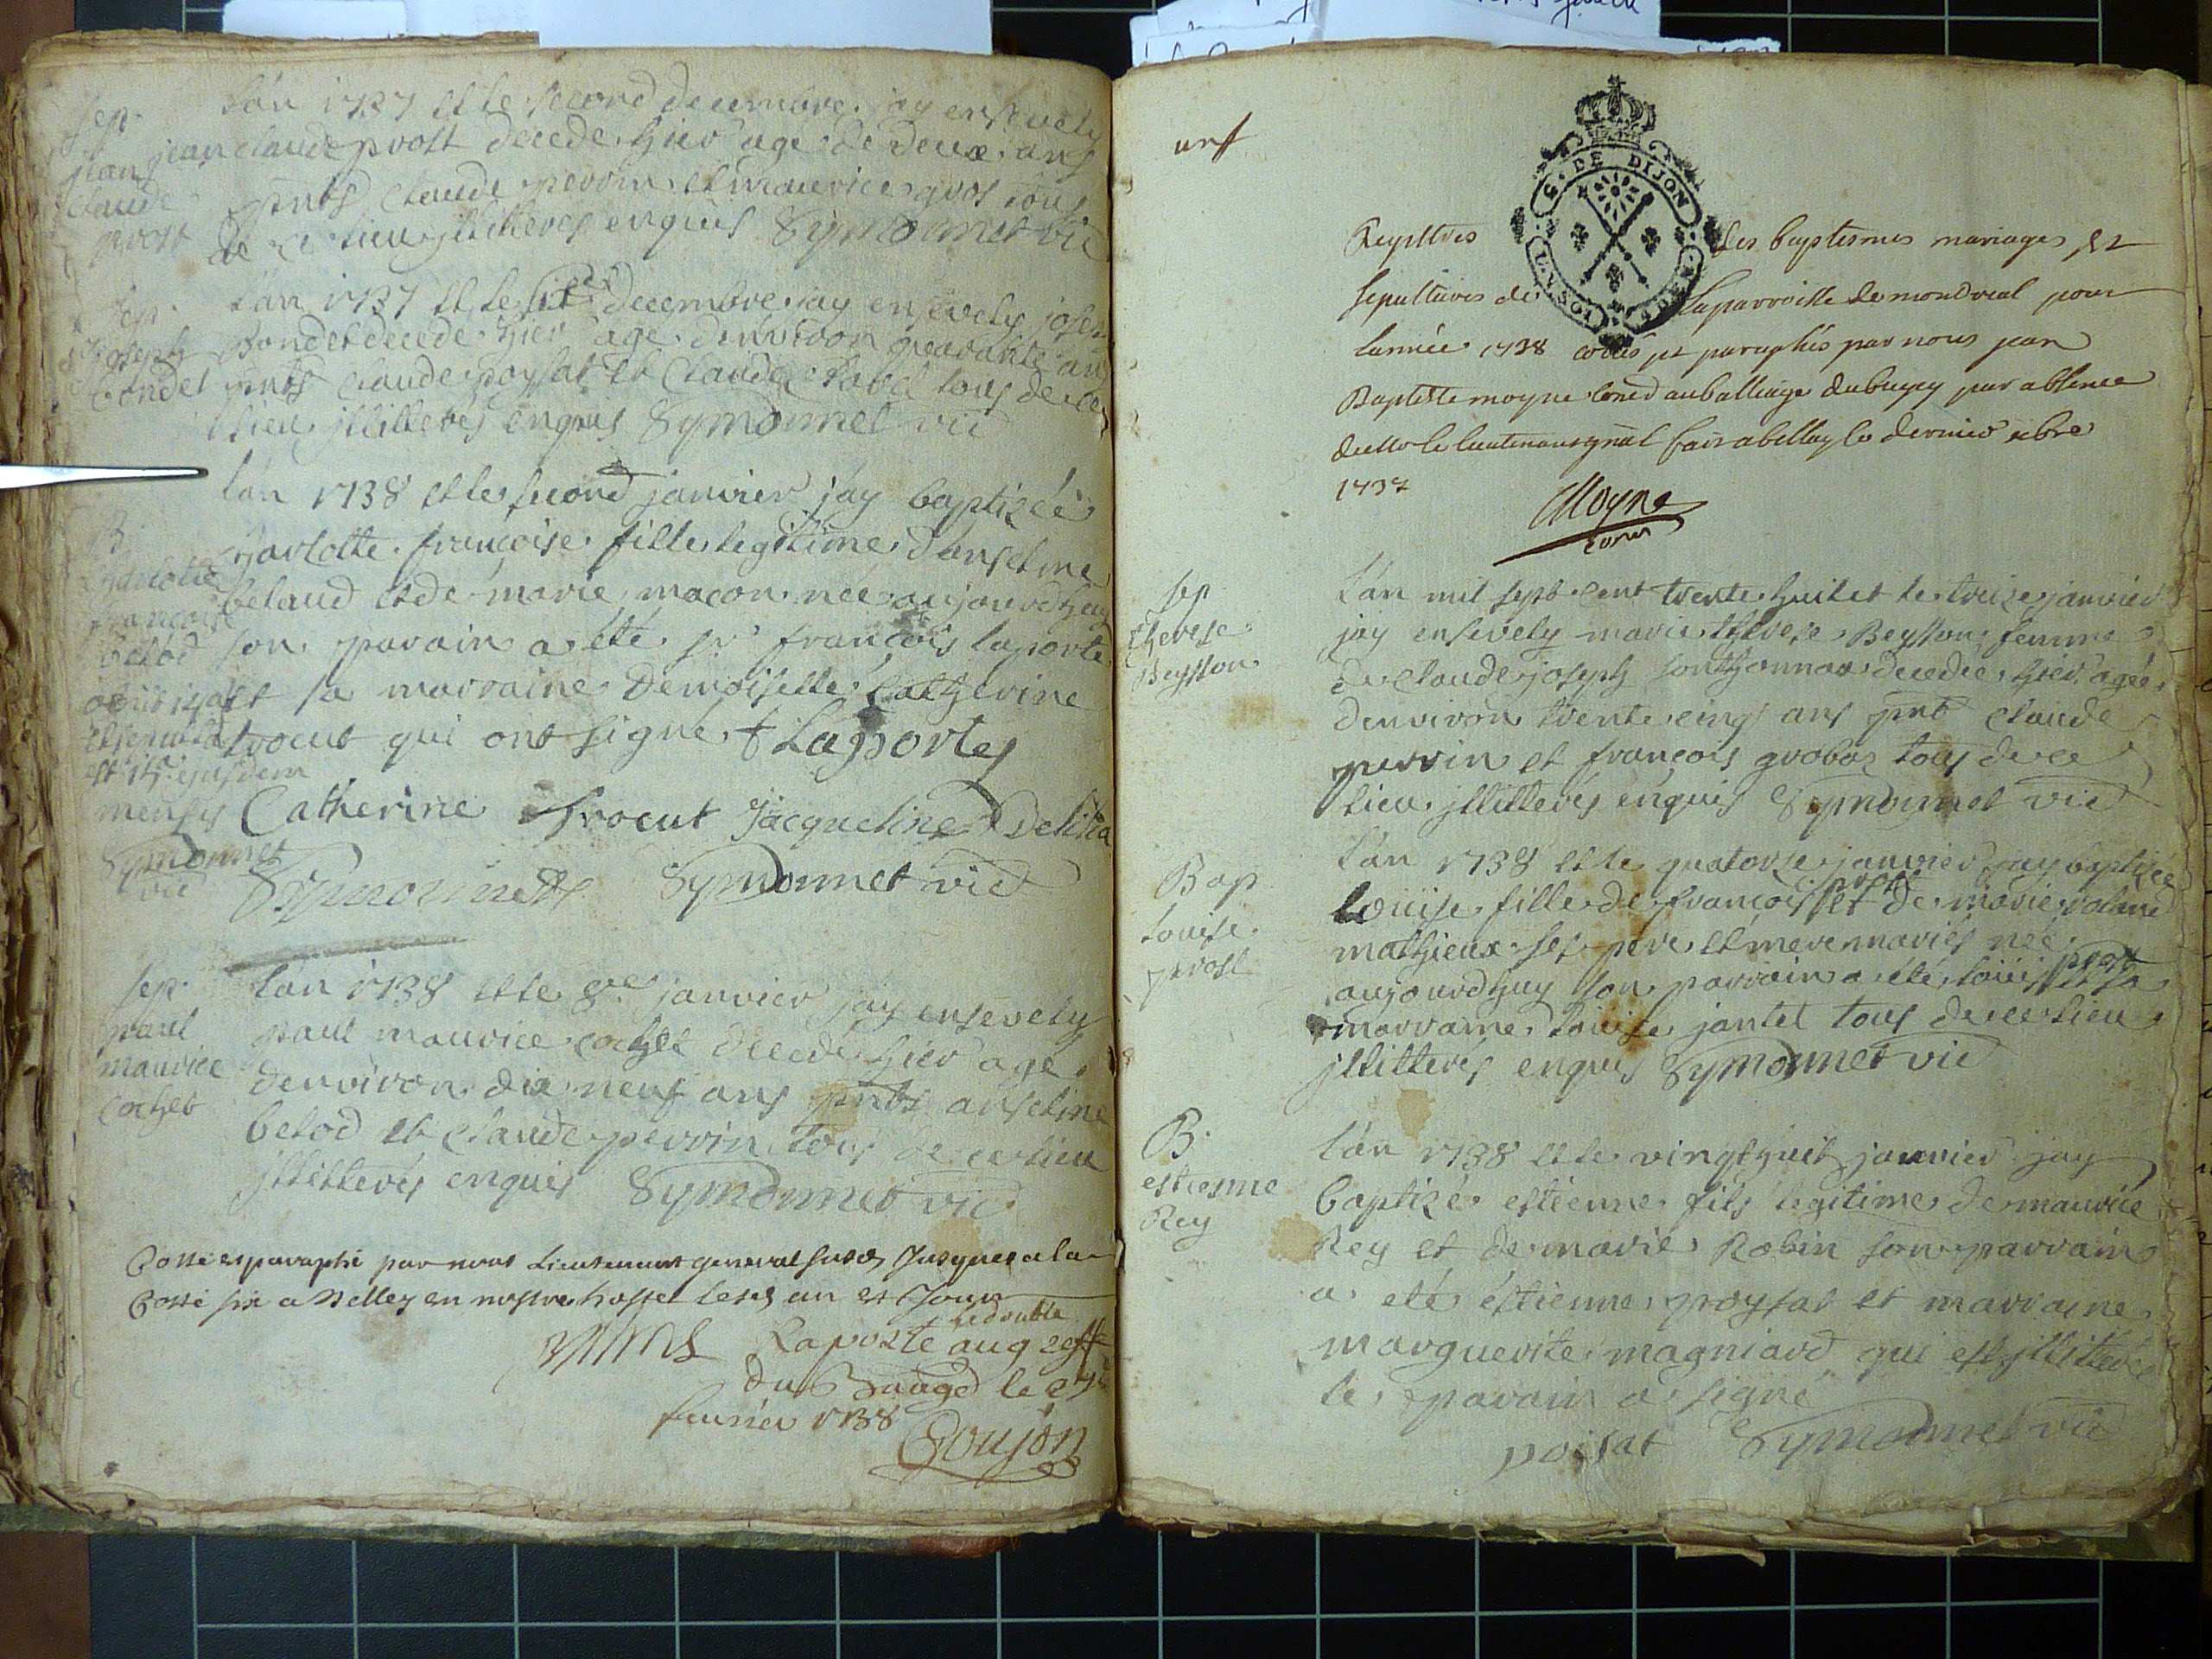 sep.
jean
claude
prost
L'an 1737 et le second decembre jay ensevely
jean claude prost decede hier age de deux ans
pnts claude perrin et maurice gros tous
de ce lieu jllitterés enquis Symonnet vic
sep.
joseph
bondet
L'an 1737 et le decembre jay ensevely joseph
Bondet decede hier age denviron quarante ans
pnts claude poysat et claude tous de ce
lieu jllitterés enquis Symonnet vic
B
charlotte
françoise
belod
obiit
et sepulta
est ejusdem
mensis
Symonnet
vic
L'an 1738 et le second janvier jay baptizée
charlotte françoise fille legitime d'anselme
belaud et de marie macon née aujourdhuy
son parain a été sr françois laporte
et sa marraine Demoiselle Catherine
trocut qui ont signé f Laporte
Catherine trocut jacqueline Delilia
Symonnet Symonnet vic
sep.
paul
maurice
cochet
L'an 1738 et le 8e janvier jay ensevely
paul maurice cochet decede hier age
denviron dix neuf ans pnts anselme
belod et claude perrin tous de ce lieu
jllitterés enquis Symonnet vic
Cotté et paraphé par nous Lieutenant general susd Jusques a la
Cotte six a Belley en nostre hostel lesd an et Jour
Raporté le double au greffe
du Bailiage le
fevrier 1738
Goujon
unf
G. DE DIJON
Regystres des baptesmes mariages et
sepultures de la parroisse de montreal pour
l'année 1738 cottés et paraphés par nous jean
Baptiste moyne conser au balliage du bugey par absence
de Mr le lieutenant gnal fait a bellay le dernier xbre
1737
Moyne
coner
sep
therese
Beysson
L'an mil sept cent trente huit et le treize janvier
jay ensevely marie therese Beysson femme
de claude joseph sonthonnax decedée hier agée
denviron trente cinq ans pnts claude
perrin et françois grobas tous de ce
lieu jllitterés enquis Symonnet vic
Bap
Louise
prost
L'an 1738 et le quatorze janvier jay baptizée
Louise fille de françois prost et de marie roland
mathieux ses pere et mere mariés née
aujourdhuy son parrain a été loüis prost et sa
marraine Louise jantet tous de ce lieu
jllitterés enquis Symonnet vic
B.
estienne
Rey
L'an 1738 et le vingt huit janvier jay
baptizé estienne fils legitime de maurice
Rey et de marie Robin son parrain
a eté éstienne poysat et marraine
marguerite magniard qui est jllitterée
le parain a signé
poisat Symonnet vic